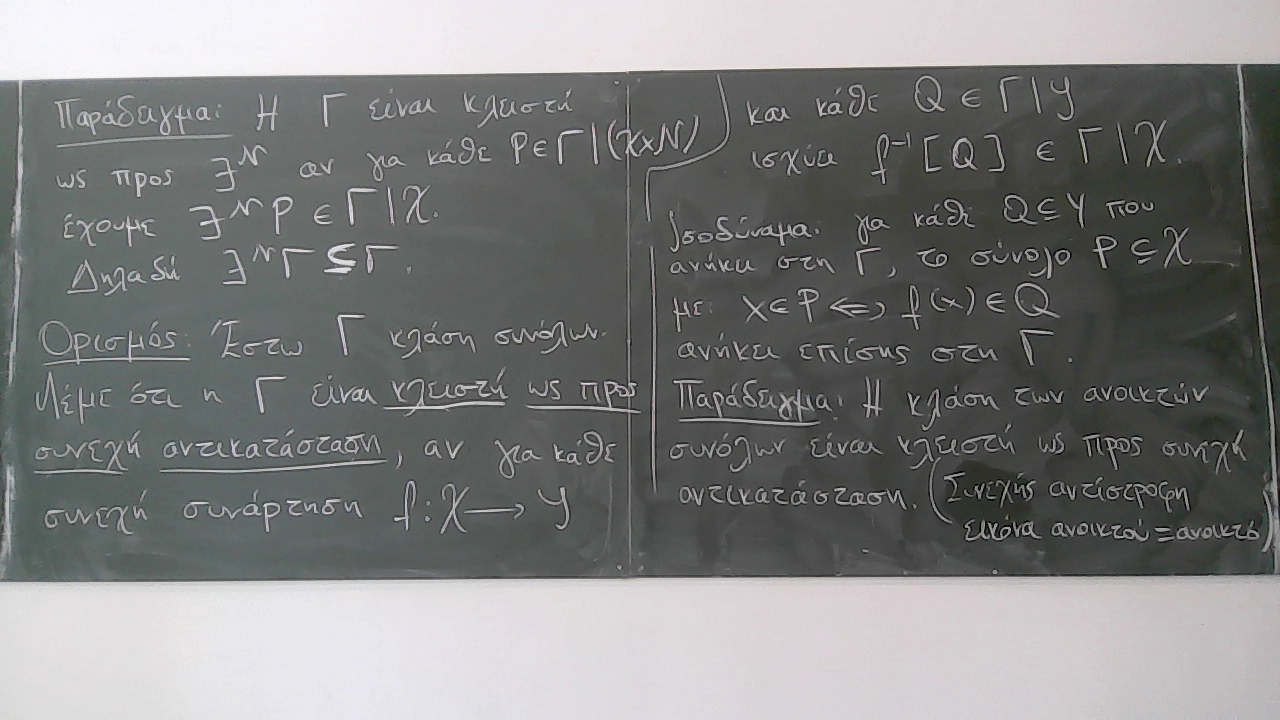 Παράδειγμα: Η Γ είναι κλειστή
ως προς ∃^𝒩 αν για κάθε P ∈ Γ|(𝒳×𝒩)
έχουμε ∃^𝒩 P ∈ Γ|𝒳.
Δηλαδή ∃^𝒩 Γ ⊆ Γ.
Ορισμός: Έστω Γ κλάση συνόλων.
Λέμε ότι η Γ είναι κλειστή ως προς
συνεχή αντικατάσταση, αν για κάθε
συνεχή συνάρτηση f: 𝒳 ⟶ 𝒴
και κάθε Q ∈ Γ|𝒴
ισχύει f⁻¹[Q] ∈ Γ|𝒳.
Ισοδύναμα: για κάθε Q ⊆ 𝒴 που
ανήκει στη Γ, το σύνολο P ⊆ 𝒳
με: x ∈ P ⇔ f(x) ∈ Q
ανήκει επίσης στη Γ.
Παράδειγμα: Η κλάση των ανοικτών
συνόλων είναι κλειστή ως προς συνεχή
αντικατάσταση. (Συνεχής αντίστροφη
εικόνα ανοικτού = ανοικτό)